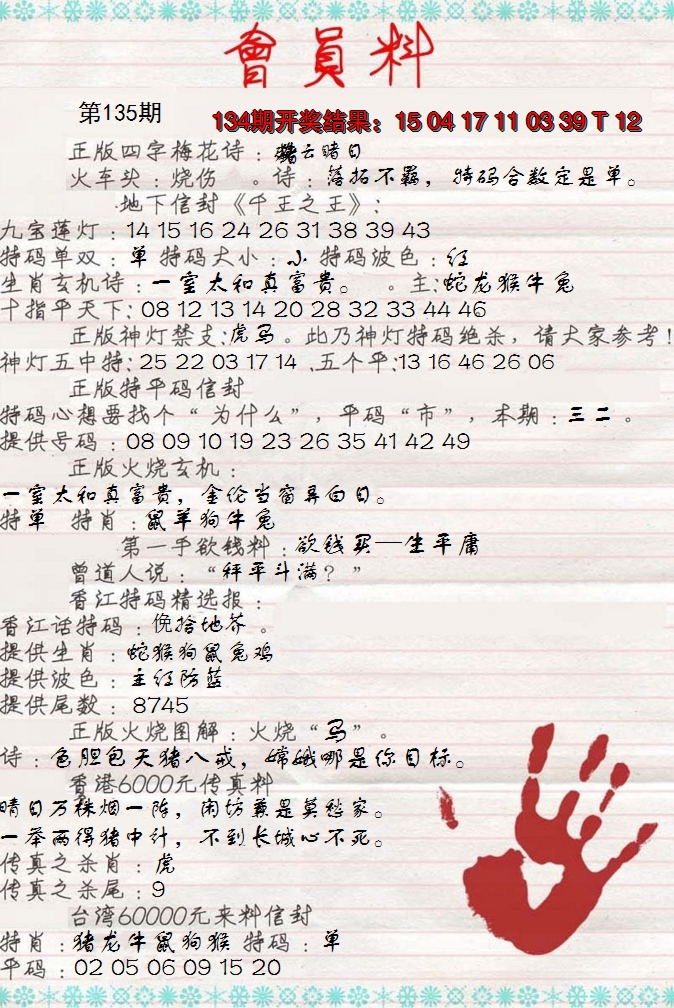 會員料
第135期
134期开奖结果：15 04 17 11 03 39 T 12
正版四字梅花诗：云睹日
火车头：烧伤 。诗：落拓不羁，特码合数定是单。
地下信封《千王之王》：
九宝莲灯：14 15 16 24 26 31 38 39 43
特码单双：单 特码大小：小 特码波色：红
生肖玄机诗：一室太和真富贵。 。主：蛇龙猴牛兔
十指平天下：08 12 13 14 20 28 32 33 44 46
正版神灯禁支：虎马。此乃神灯特码绝杀，请大家参考！
神灯五中特：25 22 03 17 14 、五个平：13 16 46 26 06
正版特平码信封
特码心想要找个“为什么”，平码“市”，本期：三二。
提供号码：08 09 10 19 23 26 35 41 42 49
正版火烧玄机：
一室太和真富贵，金伦当窗弄白日。
特单 特肖：鼠羊狗牛兔
第一手欲钱料：欲钱买一生平庸
曾道人说：“秤平斗满？”
香江特码精选报：
香江话特码：俛拾地芥。
提供生肖：蛇猴狗鼠兔鸡
提供波色：主红防蓝
提供尾数：8745
正版火烧图解：火烧“马”。
诗：色胆包天猪八戒，嫦娥哪是你目标。
香港6000元传真料
晴日万株烟一阵，闲坊兼是莫愁家。
一举两得猪中计，不到长城心不死。
传真之杀肖：虎
传真之杀尾：9
台湾60000元来料信封
特肖：猪龙牛鼠狗猴 特码：单
平码：02 05 06 09 15 20